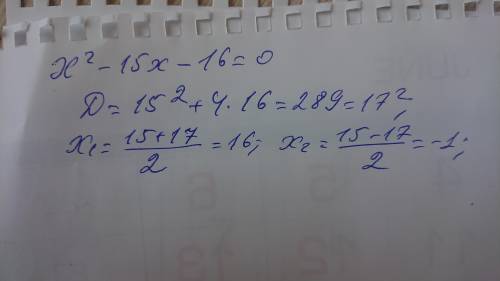 x² - 15x - 16 = 0
D = 15² + 4 · 16 = 289 = 17²;
x₁ = (15+17)/2 = 16; x₂ = (15-17)/2 = -1;